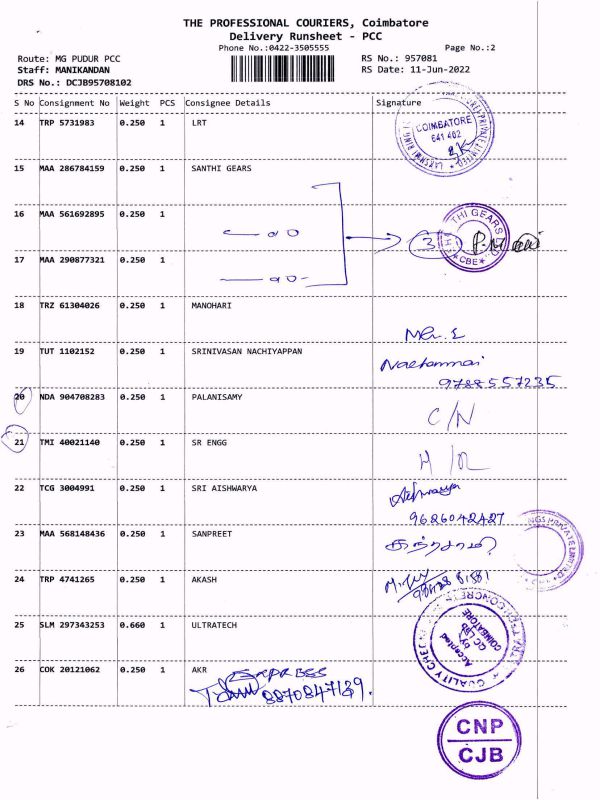 THE PROFESSIONAL COURIERS, Coimbatore
Delivery Runsheet - PCC
Phone No.:0422-3505555
Page No.:2
Route: MG PUDUR PCC
RS No.: 957081
Staff: MANIKANDAN
RS Date: 11-Jun-2022
DRS No.: DCJB95708102
S No Consignment No Weight PCS Consignee Details Signature
14 TRP 5731983 0.250 1 LRT
COIMBATORE
641 402
15 MAA 286784159 0.250 1 SANTHI GEARS
16 MAA 561692895 0.250 1
3
THI GEARS
CBE
17 MAA 290877321 0.250 1
18 TRZ 61304026 0.250 1 MANOHARI
19 TUT 1102152 0.250 1 SRINIVASAN NACHIYAPPAN
9788557235
20 NDA 904708283 0.250 1 PALANISAMY
C/N
21 TMI 40021140 0.250 1 SR ENGG
22 TCG 3004991 0.250 1 SRI AISHWARYA
9626042427
23 MAA 568148436 0.250 1 SANPREET
NGS PRIVATE LIMITED
24 TRP 4741265 0.250 1 AKASH
25 SLM 297343253 0.660 1 ULTRATECH
Accepted
by
COIMBATORE
QUALITY
CONCRETE
26 COK 20121062 0.250 1 AKR
EXPRESS
8870847139.
CNP
CJB